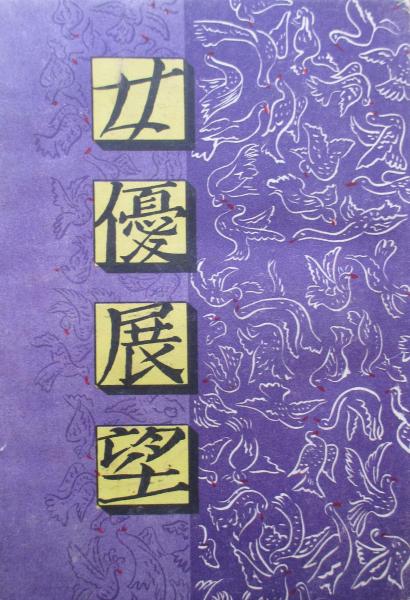 女優展望